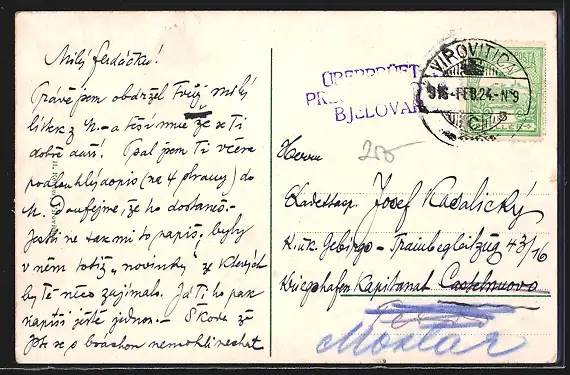 Milý Ferdáčku!
Právě jsem obdržel Tvůj milý
lístek z M. - a těší mne že se Ti
dobře daří! Psal jsem Ti včera
podlouhlý dopis (na 4 strany) do
M. Doufejme, že ho dostaneš.-
Jestli ne tak mi to napiš, byly
v něm totiž „novinky" ze kterých
by Tě něco zajímalo. Já Ti ho pak
napíši ještě jednou.- Škoda že
jste se s bráchou nemohli nechat
ÜBERPRÜFT
BJELOVAR
VIROVITICA
916 FEB. 24 - N 9
255
Herrn
Kadettasp. Josef Kadalický
K.u.k. Gebirgs-Trainbegleitzug 43/16
Kriegshafen Kapitanat Castelnuovo
Mostar